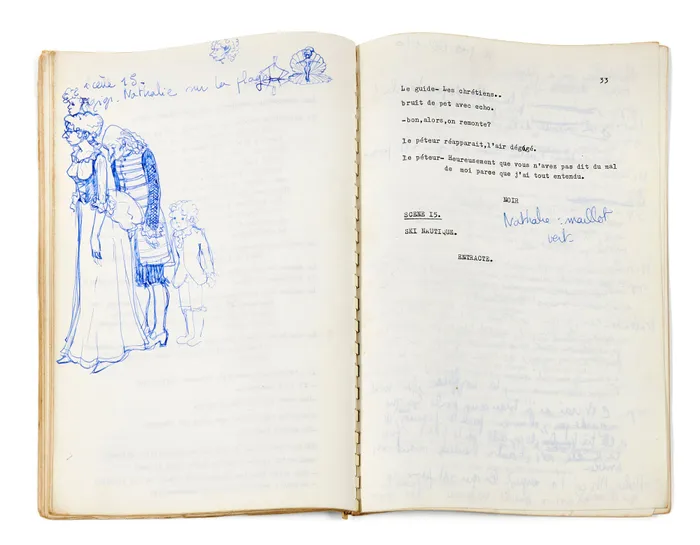 scène 15.
Nathalie sur la plage
33
Le guide- Les chrétiens..
bruit de pet avec echo.
-bon,alors,on remonte?
le péteur réapparait,l'air dégagé.
le péteur- Heureusement que vous n'aves pas dit du mal
de moi parce que j'ai tout entendu.
NOIR
SCENE 15.
SKI NAUTIQUE.
Nathalie : maillot
vert
ENTRACTE.